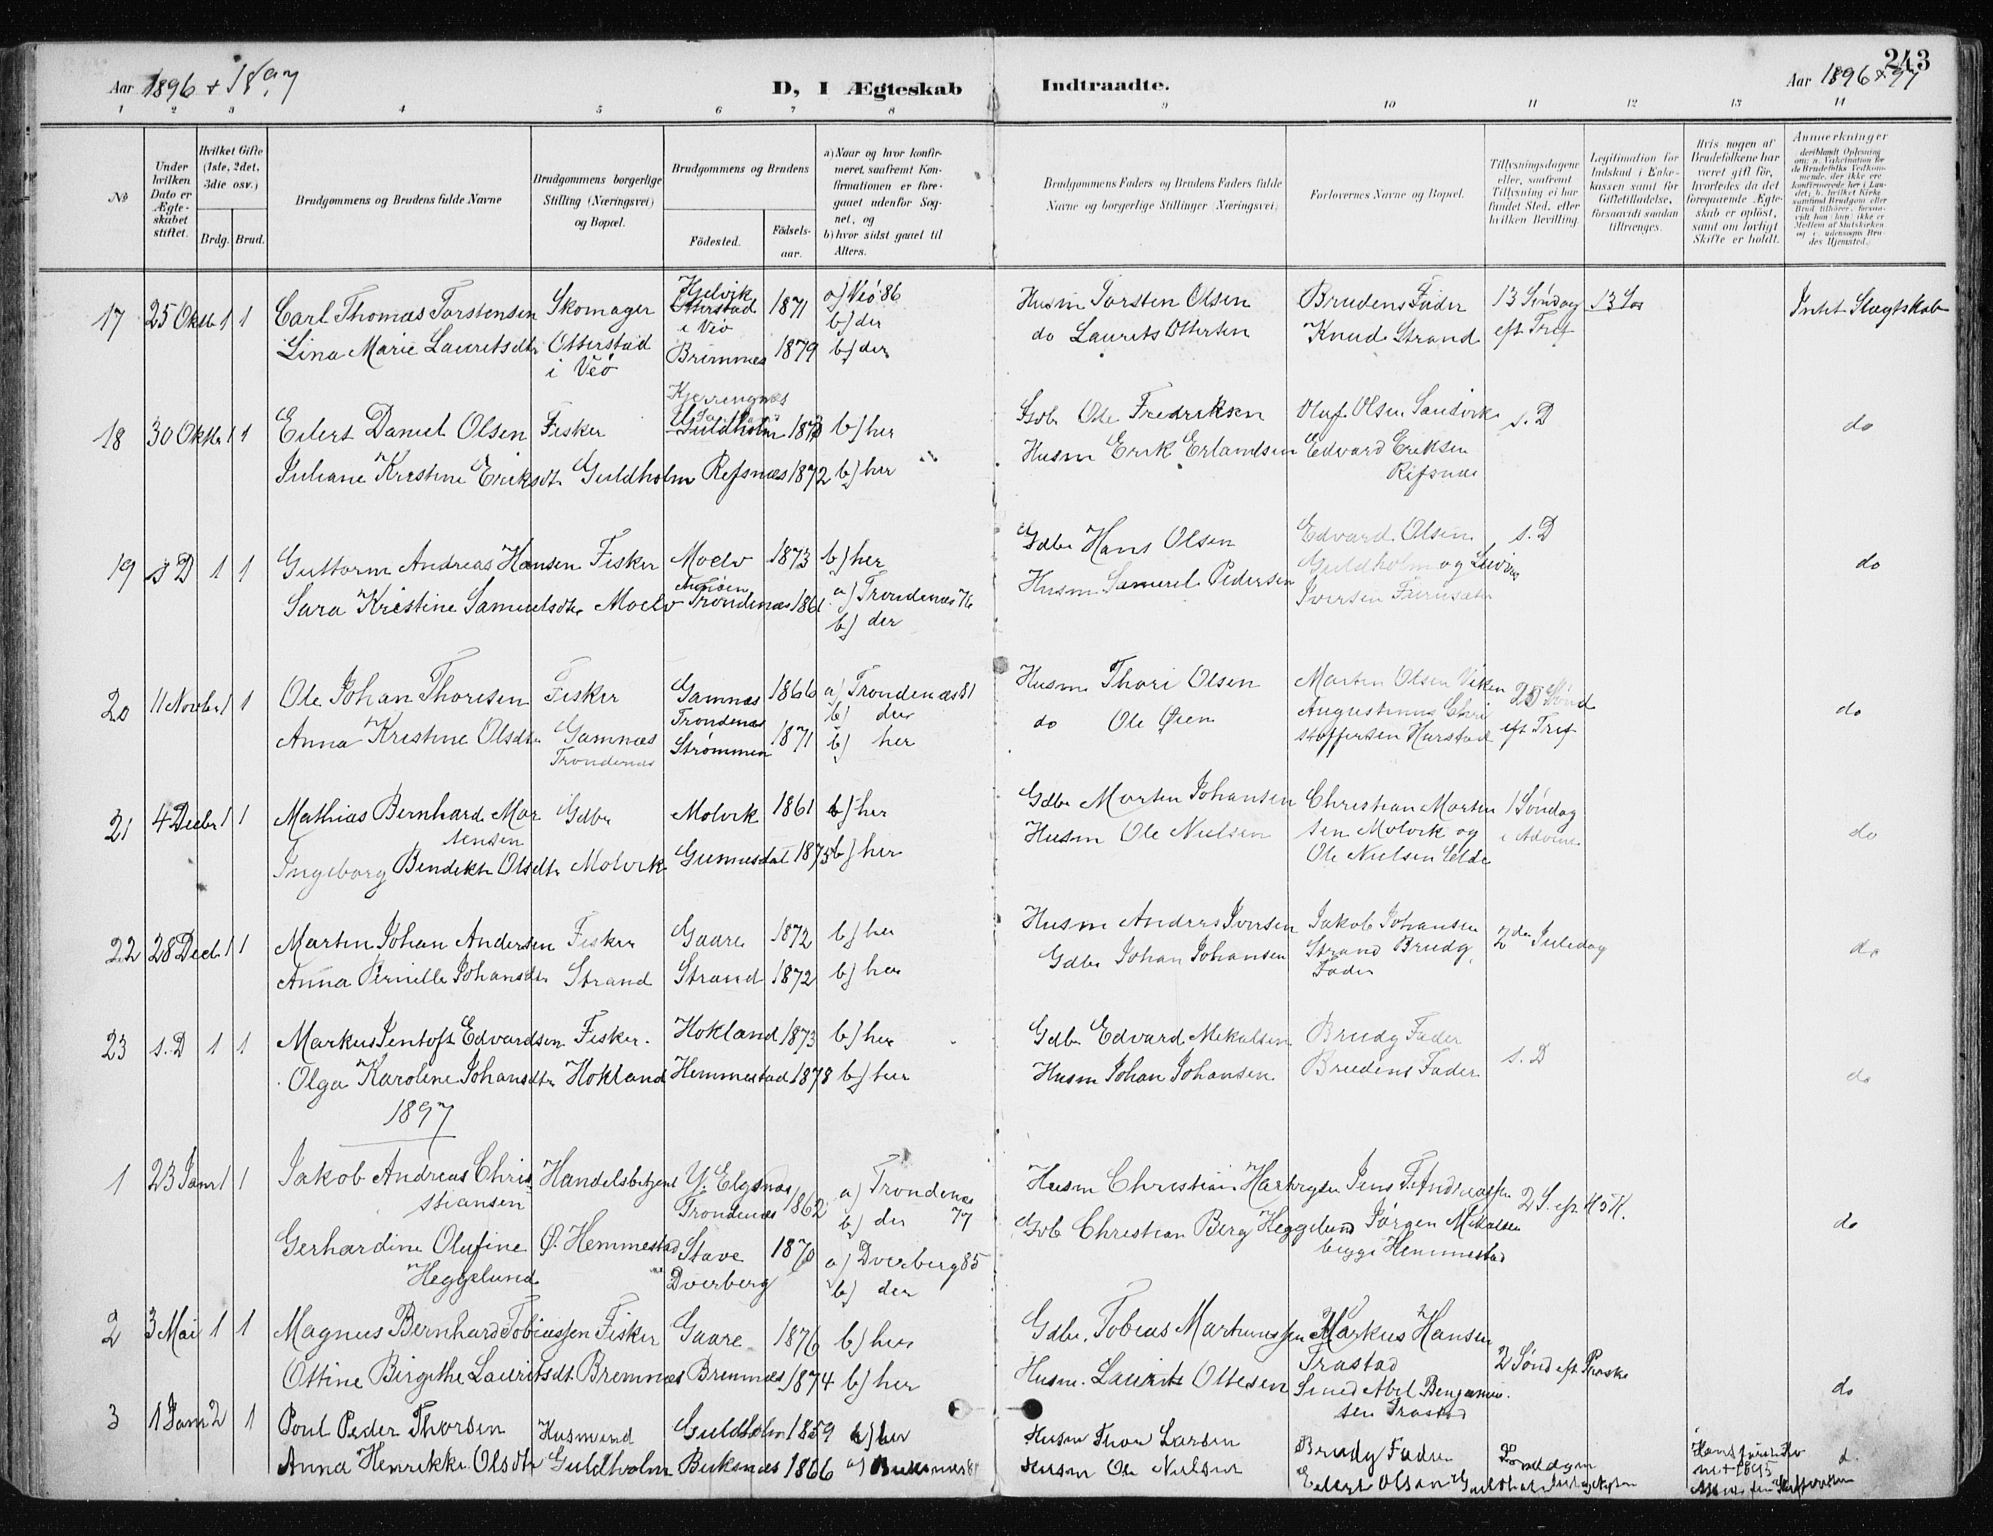 243
Aar 1896 + 1897
D, I Ægteskab Indtraadte.
Aar 1896 + 97
1 2 3 4 5 6 7 8 9 10 11 12 13 14
No
Under hvilken Dato er Ægteskabet stiftet.
Hvilket Gifte (1ste, 2det, 3die osv.)
Brdg. Brud.
Brudgommens og Brudens fulde Navne
Brudgommens borgerlige Stilling (Næringsvei) og Bopæl.
Brudgommens og Brudens
Fødested. Fødselsaar.
a) Naar og hvor konfirmeret, saafremt Konfirmationen er foregaaet udenfor Sognet, og
b) hvor sidst gaaet til Alters.
Brudgommens Faders og Brudens Faders fulde Navne og borgerlige Stillinger (Næringsvei)
Forlovernes Navne og Bopæl.
Tillysningsdagene eller, saafremt Tillysning ei har fundet Sted, efter hvilken Bevilling
Legitimation for Indskud i Enkekassen samt for Giftetilladelse, forsaavidt saadan tiltrænges.
Hvis nogen af Brudefolkene har været gift før, hvorledes da det foregaaende Ægteskab er opløst, samt om lovligt Skifte er holdt.
Anmerkninger
17 25 Oktb 1 1 Carl Thomas Torstensen Skomager Otterstad i Veø 1871 a) Veö 86 Husm Torsten Olsen Brudens Fader 13 Søndag Intet Slægtskab
b) der
Lina Marie Lauritsdtr Otterstad i Veö Bremnes 1879 b) der do Laurits Ottersen Knud Strand eft Tref
18 30 Oktbr 1 1 Eilert Daniel Olsen Fisker Kjerringnes Guldholm 1873 b) her Gdb Ole Fredriksen Oluf Olsen Sandvik s. D do
Juliane Kristine Eriksdt. Guldholm Refsnæs 1872 b) her Husm Erik Erlandsen Edvard Eriksen Refsnæs
19 s D 1 1 Guttorm Andreas Hansen Fisker Moelv 1873 b) her Gdbr Hans Olsen Edvard Olsen s. D do
Guldholm og
Sara Kristine Samuelsdtr Moelv Trondenæs a) Trondenæs 76 Husm Samuel Pedersen Iversen
b) der
20 11 Novbr 1 1 Ole Johan Thoresen Fisker Gamnæs Trondenæs 1866 a) Trondenæs 81 Husm Thori Olsen Martin Olsen Viken do
b) der
Anna Kristine Olsdtr Gamnæs Trondenæs Strømmen 1871 b) her do Ole Øien Augustinus Christoffersen Harstad eft Tref
21 4 Decbr 1 1 Mathias Bernhard Martensen Gdbr Molvik 1861 b) her Gdbr Morten Johansen Christian Mortensen Molvik og 1 Søndag i Advent do
Ingeborg Bendikte Olsdtr Molvik 1875 b) her Husm Ole Nielsen Ole Nielsen
22 28 Decb 1 1 Martin Johan Andersen Fisker Gaare 1872 b) her Husm Anders Iversen Jakob Johansen 2den Juledag do
Anna Pernille Johansdtr Strand Strand 1872 b) her Gdbr Johan Johansen Strand Brudg. Fader
23 s. D 1 1 Markus Jentoft Edvardsen Fisker. Hokland 1873 b) her Gdbr Edvard Mikalsen Brudg Fader s. D do
Olga Karoline Johansdtr Hokland Hemmestad 1878 b) her Husm Johan Johansen Brudens Fader
1897
1 23 Janr 1 1 Jakob Andreas Christiansen Handelsbetjent Y. Elgsnæs Trondenæs 1862 a) Trondenæs 77 Husm Christian do
b) der
Gerhardine Olufine Heggelund Ø. Hemmestad Stave Dverberg 1870 a) Dverberg 85 Gdb Christian Berg Heggelund Jørgen Mikalsen begge Hemmestad
b) der
2 3 Mai 1 1 Magnus Bernhard Tobiassen Fisker Gaare 1876 b) her Gdbr. Tobias Martinussen Markus Hansen Trastad 2 Sønd eft Paaske do
Ottine Birgithe Lauritsdt. Bremnæs Bremnæs 1874 b) her Husm. Laurits Ottesen Abel Benjaminsen Trastad
3 1 2 1 Poul Peder Thorsen Husmand Guldholm 1859 b) her Husm Thore Larsen Brudg Fader
Anna Henrikke Olsdtr Guldholm Buksnæs 1866 Husm Ole Nielsen Eilert Olsen Guldholm